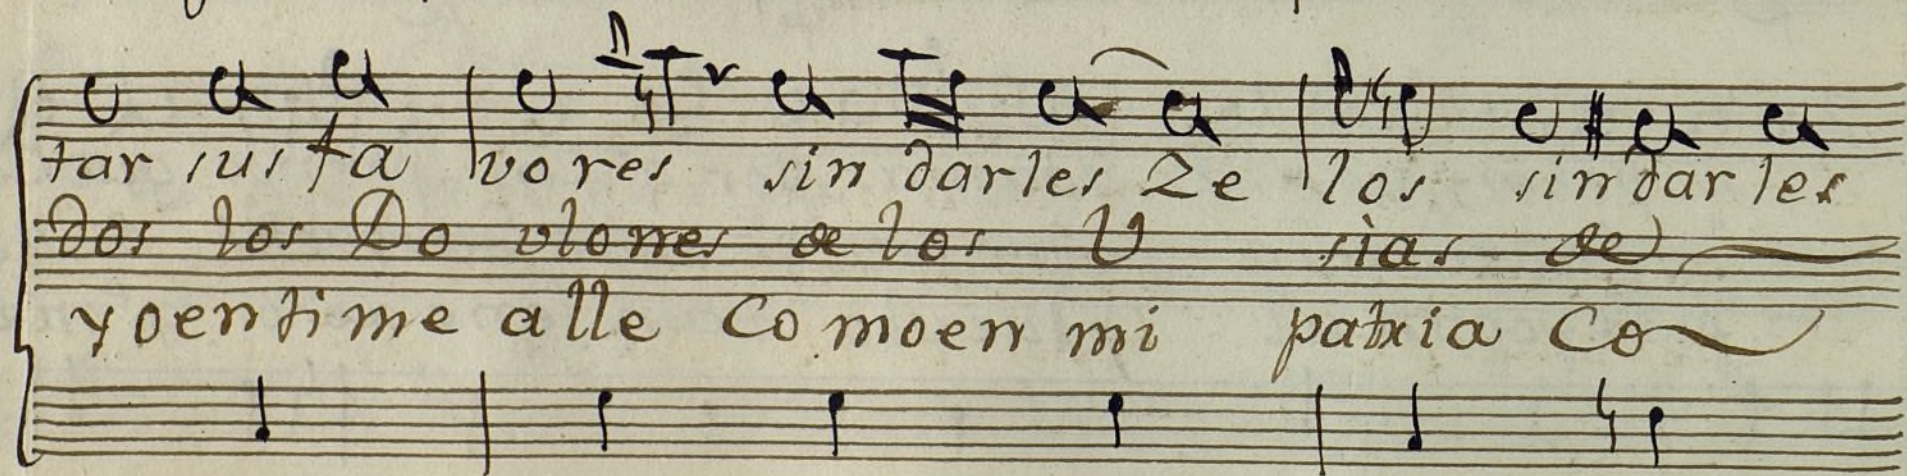 tar sus fa vores sin darles Ze los sin darles
dos los Do vlones de los V sias de
yoentime alle Co moen mi patria Co